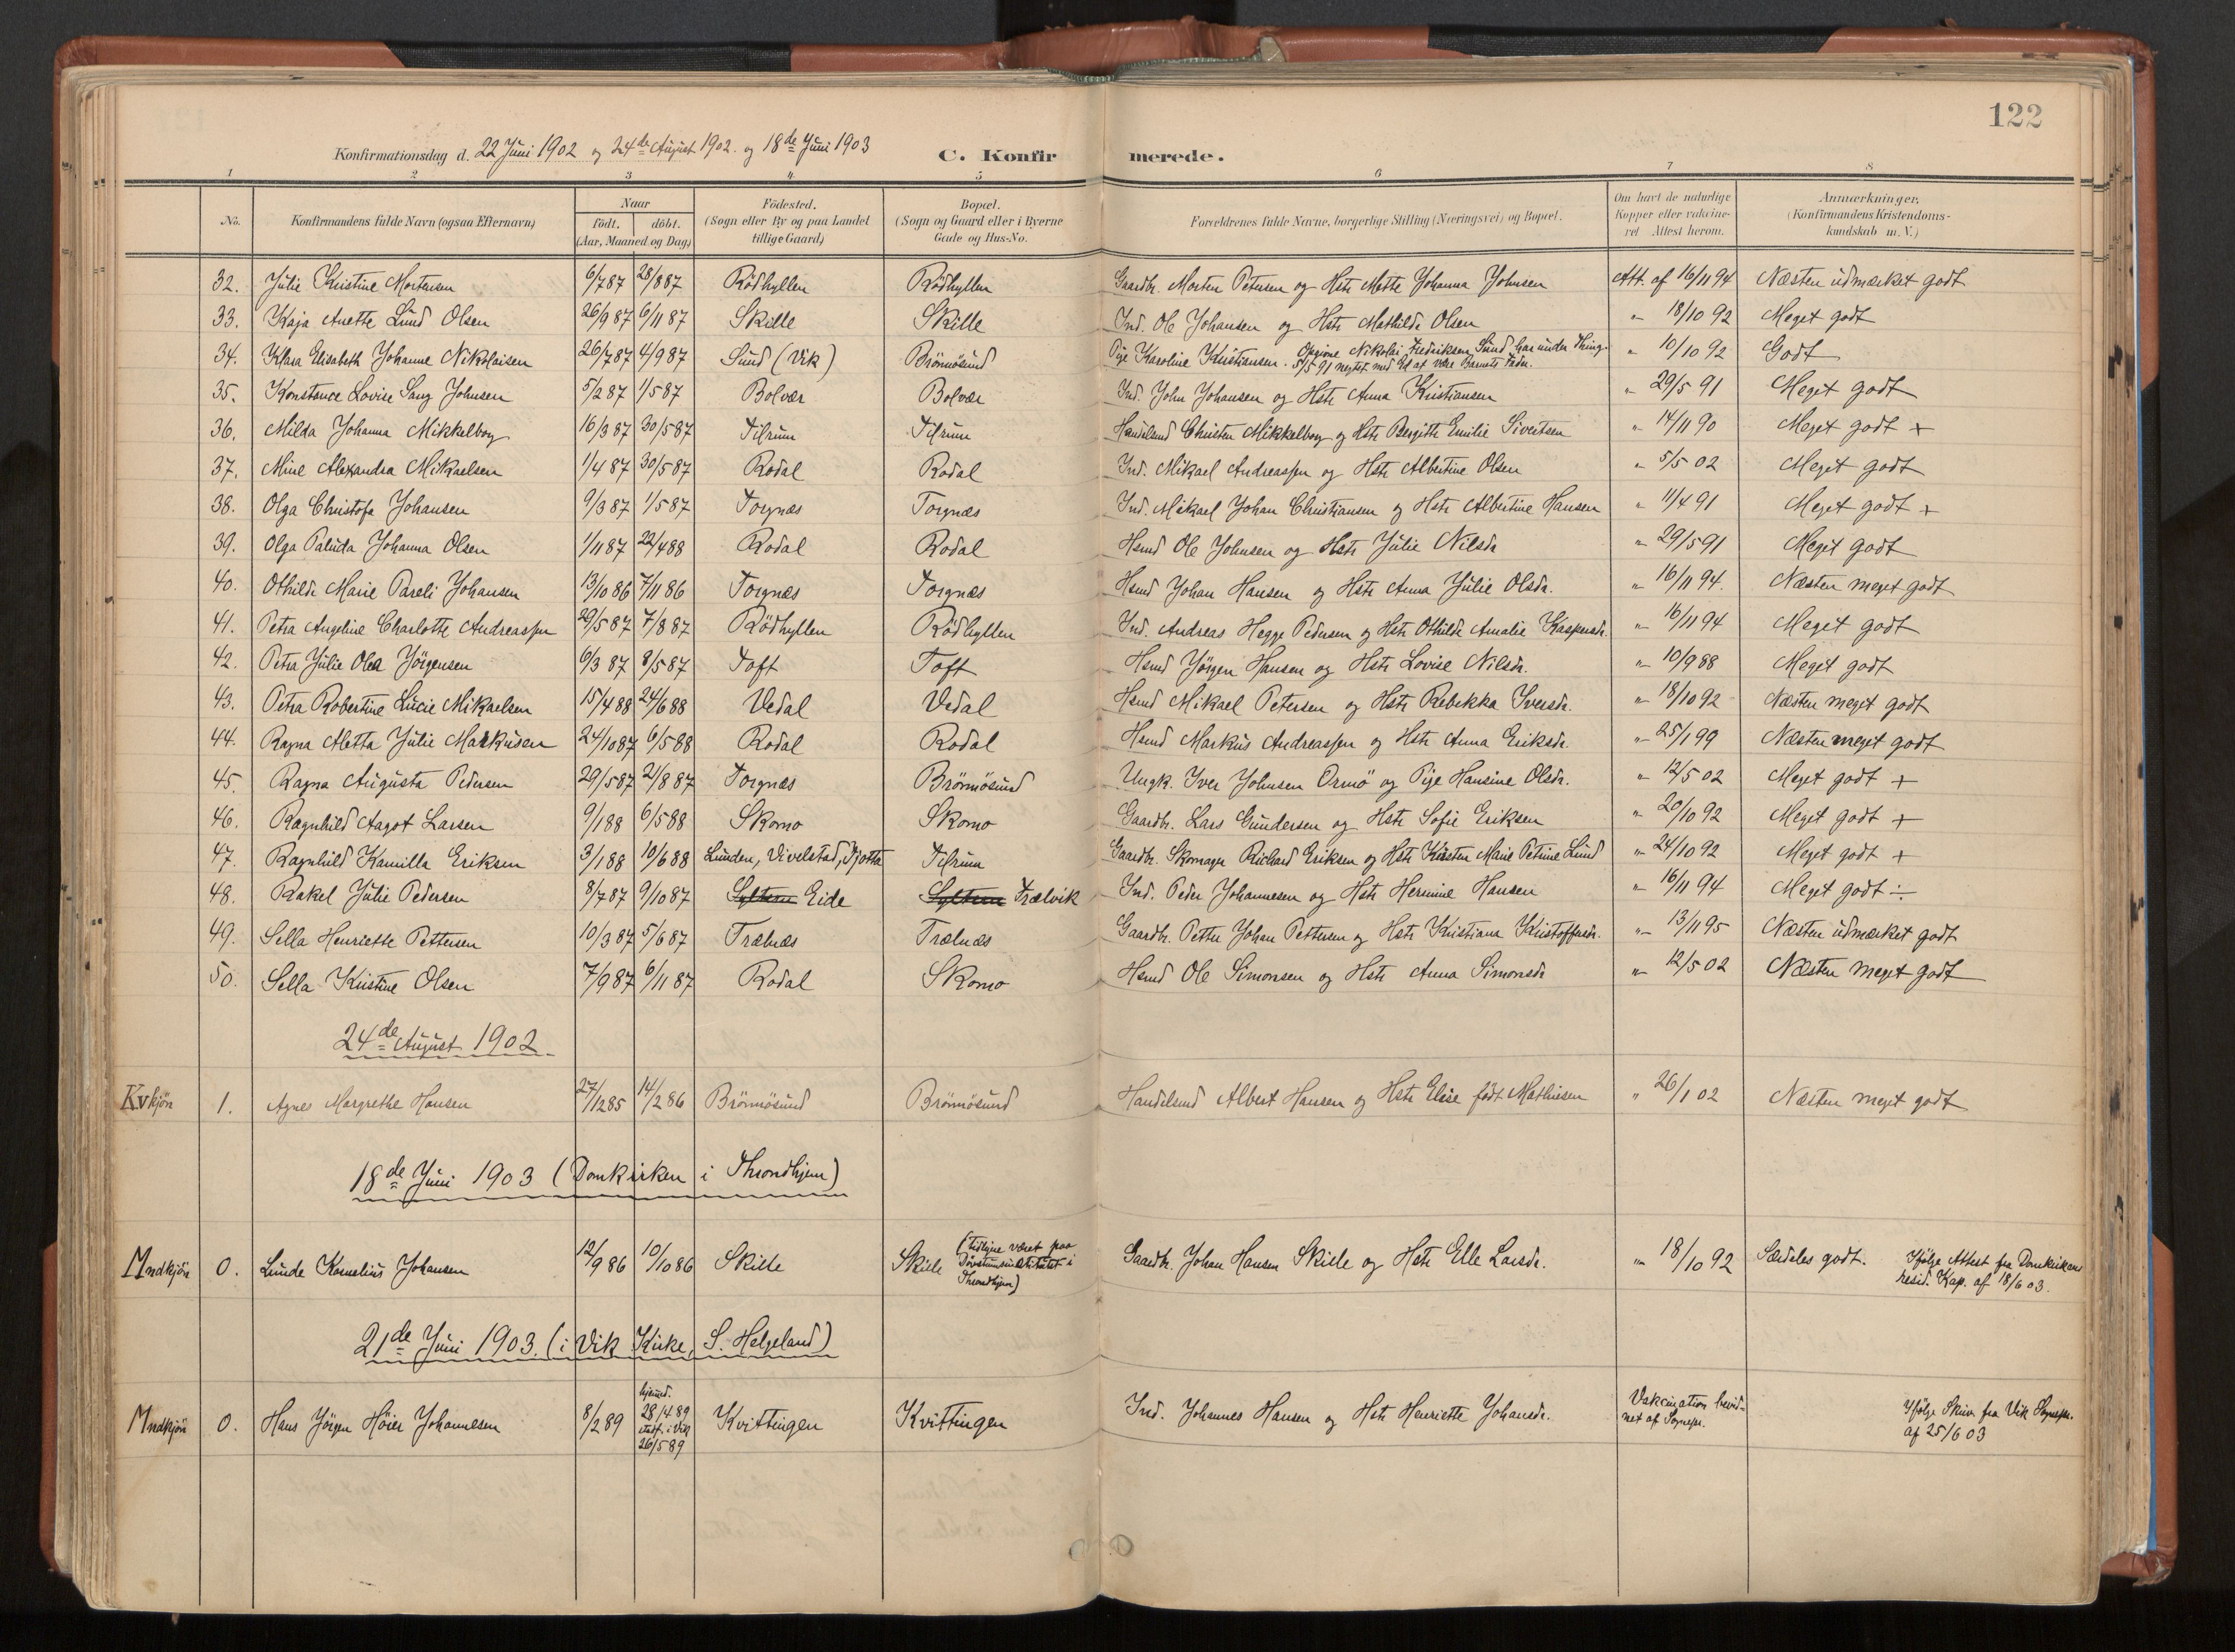 122
Konfirmationsdag d. 22 Juni 1902 og 24de August 1902 og 18de Juni 1903 C. Konfirmerede.
1 2 3 4 5 6 7 8
No. Konfirmandens fulde Navn (ogsaa Efternavn) Naar födt. döbt. (Aar, Maaned og Dag) Födested. (Sogn eller By og paa Landet tillige Gaard) Bopæl. (Sogn og Gaard eller i Byerne Gade og Hus-No. Forældrenes fulde Navne, borgerlige Stilling (Næringsvei) og Bopæl. Om havt de naturlige Kopper eller vaccineret Attest herom. Anmærkninger. (Konfirmandens Kristendomskundskab m. V.)
32. Julie Kristine Mortensen 6/7 87 28/8 87 Rödhyllen Rödhyllen Gaardbr. Morten Petersen og Hstr Mette Johanna Johnsen Att. af 16/11 94 Næsten udmærket godt
33. Kaja Anette Lund Olsen 26/9 87 6/11 87 Skille Skille Ind. Ole Johansen og Hstr Mathilde Olsen " 18/10 92 Meget godt
34. Klara Elisabeth Johanne Nikolaisen 26/7 87 4/9 87 Sund (Vik) Brönnösund Pige Karoline Kristiansen. Opgivne Nikolai Fredriksen Sund har under Thing 5/5 91 negtet med Ed at være Barnets Fader. " 10/10 92 Godt
35. Konstance Lovise Sang Johnsen 5/2 87 1/5 87 Bolvær Bolvær Ind. John Johansen og Hstr Anna Kristiansen " 29/5 91 Meget godt
36. Milda Johanna Mikkelborg 16/3 87 30/5 87 Tilrum Tilrum Handelsmd Christen Mikkelborg og Hstr Bergitte Emilie Sivertsen " 14/11 90 Meget godt +
37. Mine Alexandra Mikaelsen 1/4 87 30/5 87 Rodal Rodal Ind. Mikael Andreassen og Hstr Albertine Olsen " 5/5 02 Meget godt
38. Olga Christofa Johansen 9/3 87 1/5 87 Torgnæs Torgnæs Ind. Mikael Johan Christiansen og Hstr Albertine Hansen " 11/4 91 Meget godt +
39. Olga Paluda Johanna Olsen 1/11 87 22/4 88 Rodal Rodal Hsmd Ole Johnsen og Hstr Julie Nilsdr " 29/5 91 Meget godt
40. Othilde Marie Pareli Johansen 13/10 86 7/11 86 Torgnæs Torgnæs Hsmd Johan Hansen og Hstr Anna Julie Olsdr. " 16/11 94. Næsten meget godt
41. Petra Angeline Charlotte Andreassen 29/5 87 7/8 87 Rödhyllen Rödhyllen Ind. Andreas Hegge Pedersen og Hstr Othilde Amalie Kaspersdr. " 16/11 94 Meget godt
42. Petra Julie Olea Jörgensen 6/3 87 8/5 87 Toft Toft Hsmd Jörgen Hansen og Hstr Lovise Nilsdr. " 10/9 88 Meget godt
43. Petra Robertine Lucie Mikaelsen 15/4 88 24/6 88 Vedal Vedal Hsmd Mikael Petersen og Hstr Rebekka Iversdr. " 18/10 92 Næsten meget godt
44. Ragna Aletta Julie Markusen 24/10 87 6/5 88 Rodal Rodal Hsmd Markus Andreassen og Hstr Anna Eriksdr. " 25/1 99 Næsten meget godt
45. Ragna Augusta Pedersen 29/5 87 21/8 87 Torgnæs Brönnösund Ungk. Iver Johnsen Ormö og Pige Hansine Olsdr. " 12/5 02 Meget godt +
46. Ragnhild Aagot Larsen 9/1 88 6/5 88 Skomo Skomo Gaardbr. Lars Gundersen og Hstr Sofie Eriksen " 20/10 92 Meget godt +
47. Ragnhild Kamilla Eriksen 3/1 88 10/6 88 Lunden, Vivelstad, Tjotta Tilrum Gaardbr. Skomager Richard Eriksen og Hstr Kirsten Marie Petrine Lund " 24/10 92 Meget godt +
48. Rakel Julie Pedersen 8/7 87 9/10 87 Eide Trælvik Ind. Peder Johannesen og Hstr Hermine Hansen " 16/11 94 Meget godt ÷
49. Sella Henriette Pettersen 10/3 87 5/6 87 Trælnæs Trælnæs Gaardbr. Petter Johan Pettersen og Hstr Kristiana Kristoffersdr. " 13/11 95 Næsten udmærket godt
50. Sella Kristine Olsen 7/9 87 6/11 87 Rodal Skomo Hsmd Ole Simonsen og Hstr Anna Simonsdr " 12/5 02 Næsten meget godt
24de August 1902
Kvkjön 1. Agnes Margrethe Hansen 27/12 85 14/2 86 Brönnösund Brönnösund Handelsmd Albert Hansen og Hstr Elise födt Mathisen " 26/1 02 Næsten meget godt
18de Juni 1903 (Domkirken i Throndhjem)
Mndkjön 0. Lunde Kornelius Johansen 12/9 86 10/10 86 Skille Skille (tidligere været paa Dövstumsinstitutet i Throndhjem) Gaardbr. Johan Hansen Skille og Hstr Elle Larsdr. " 18/10 92 Særdeles godt. Ifölge Attest fra Domkirkens resid. Kap. af 18/6 03.
21de Juni 1903. (i Vik Kirke, S. Helgeland)
Mndkjön 0. Hans Jörgen Höier Johannesen 8/2 89 hjemed. 28/4 89 stadf. i Vik 26/5 89 Kvittingen Kvittingen Ind. Johannes Hansen og Hstr Henriette Johansdr. Vakcination bevidnet af Sognepr. Ifölge Skriv. fra Vik Sognepr. af 25/6 03